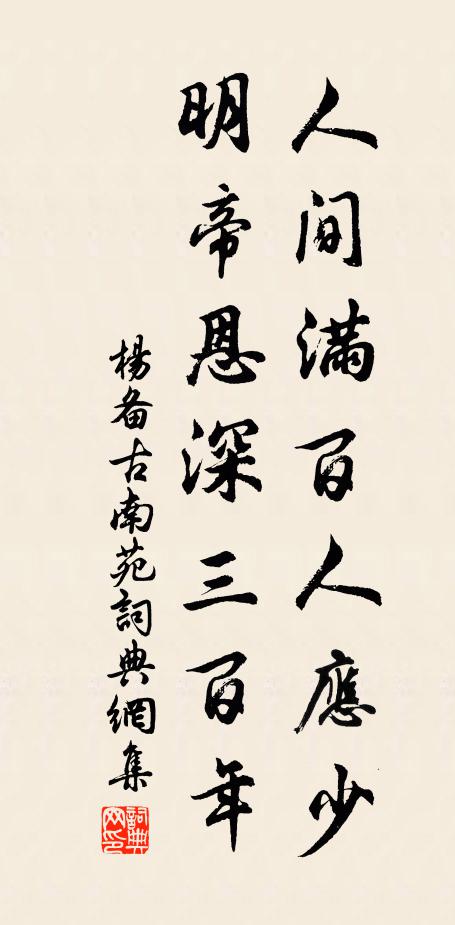 人间满百人應少
明帝恩深三百年
楊备古南苑詞典網集
詞典网印